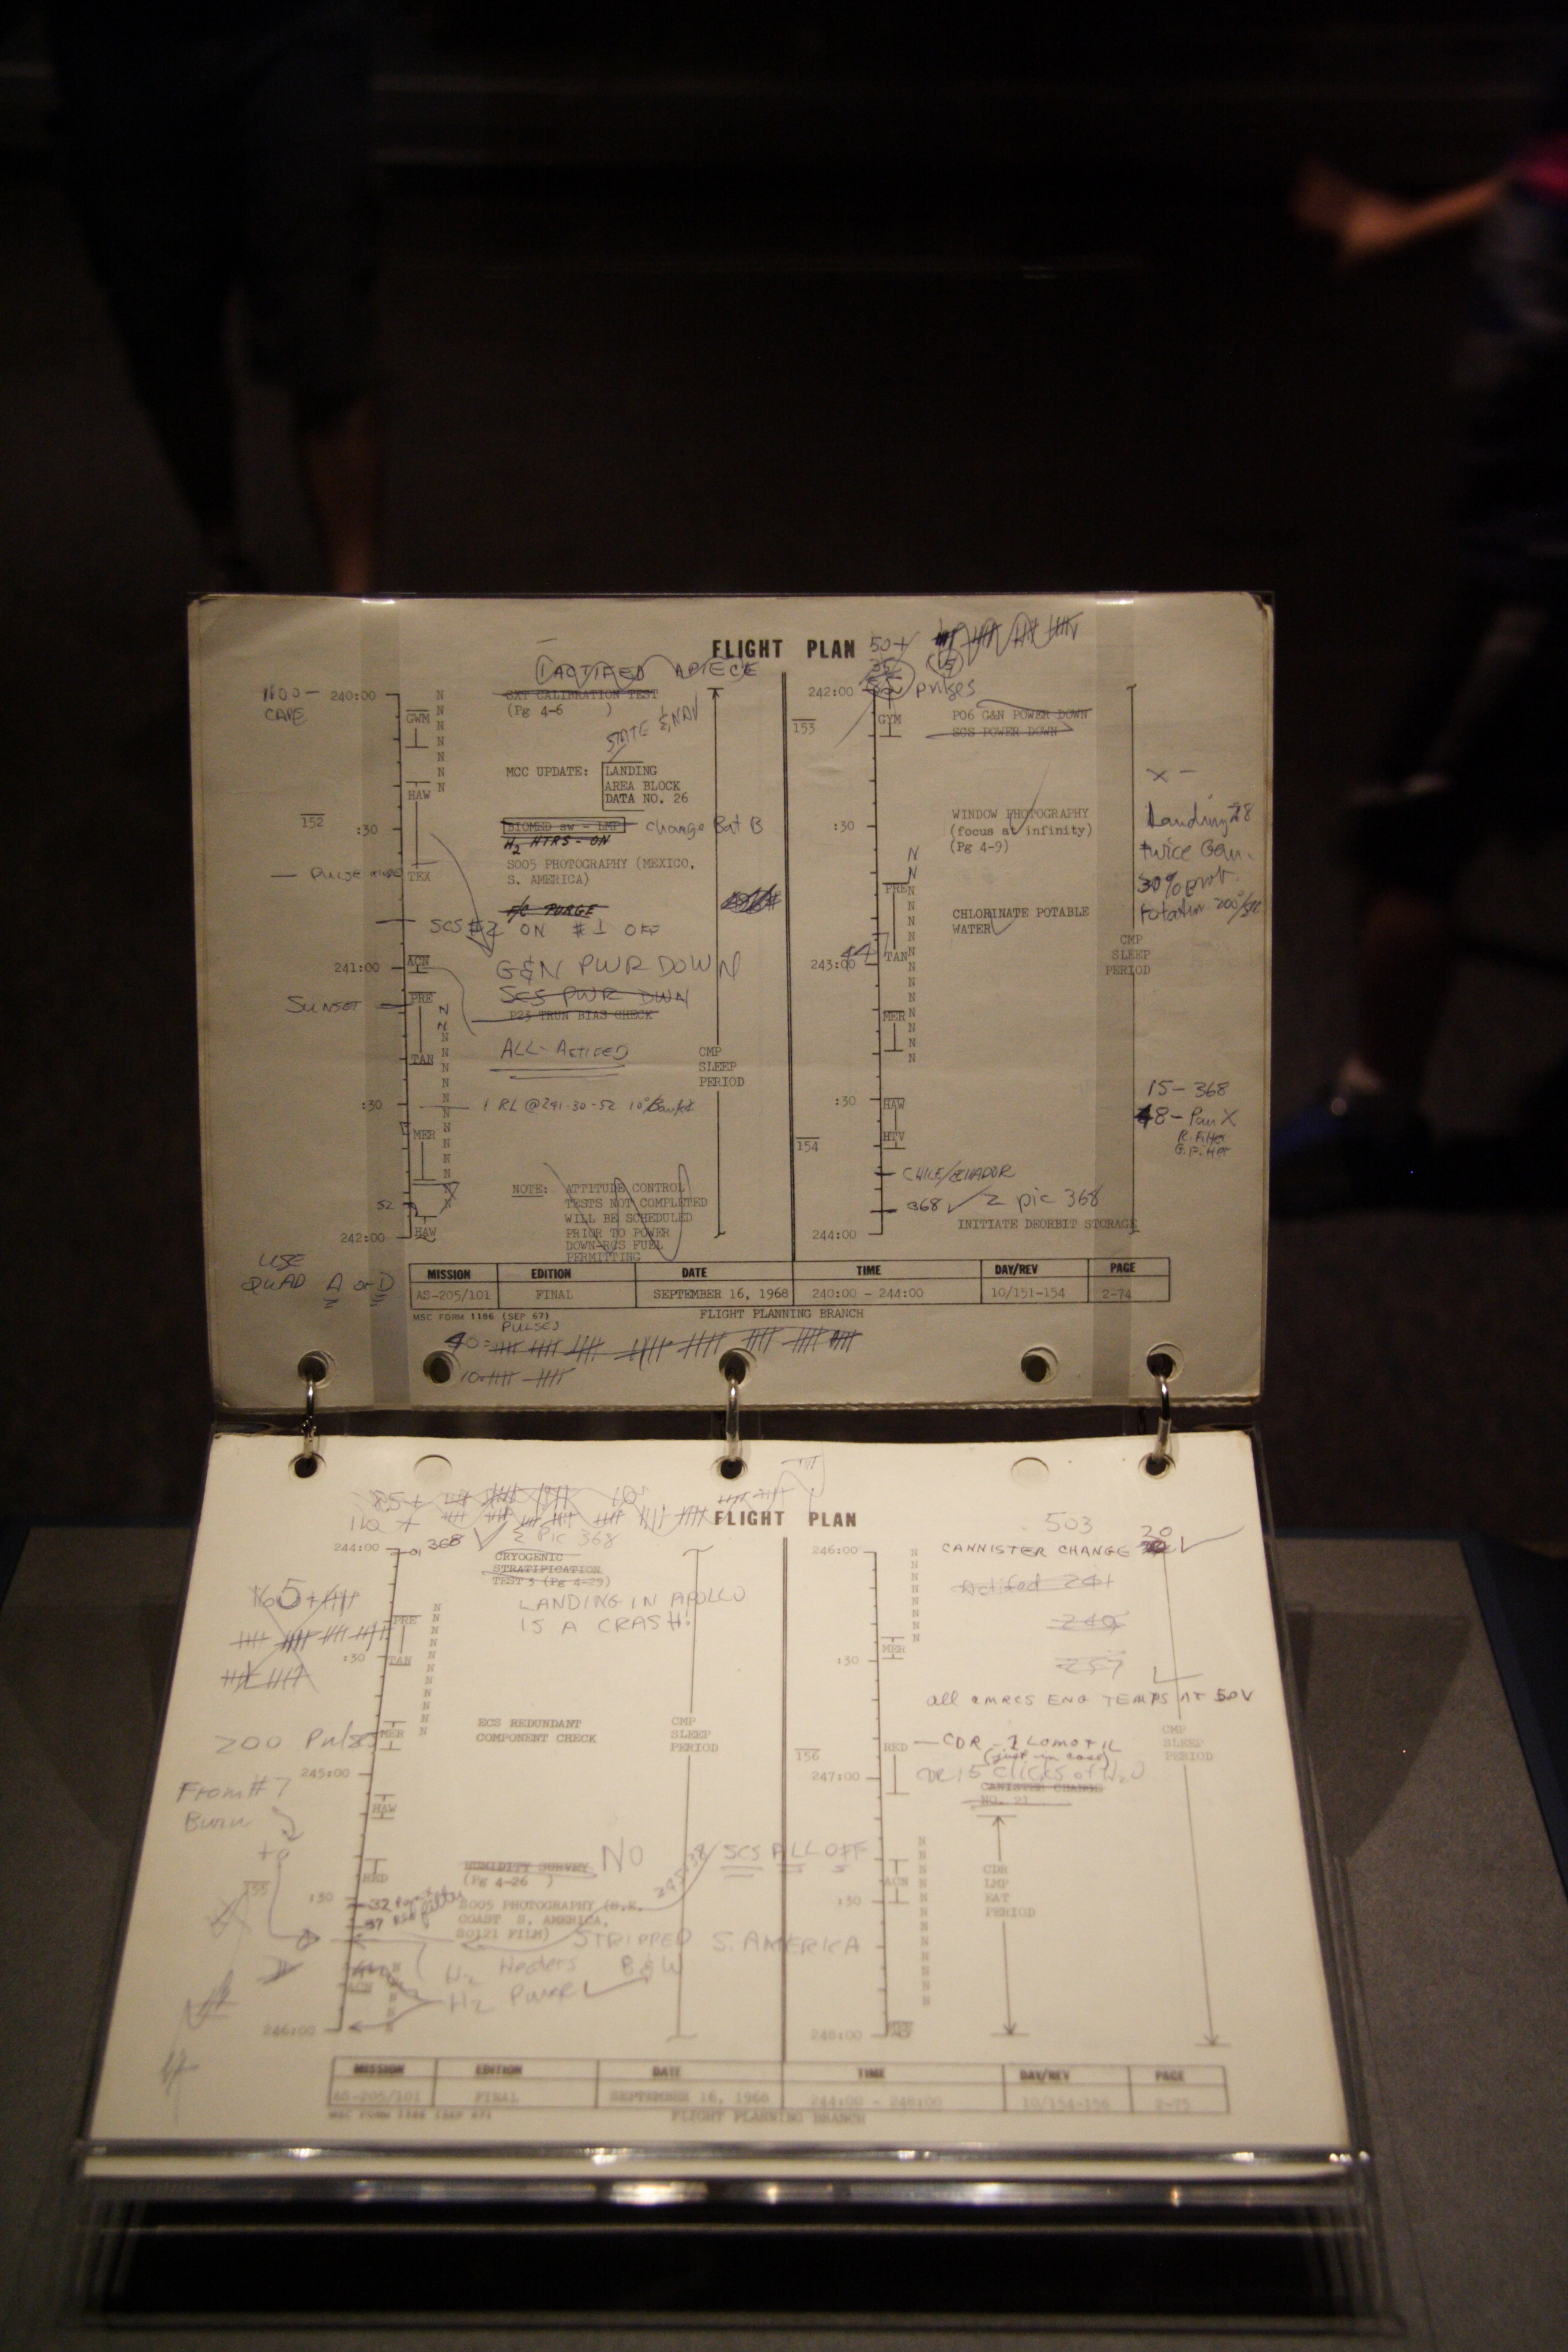 FLIGHT PLAN
50+
1 ACTIFED APIECE
1100-
CAPE
240:00
SXT CALIBRATION TEST
(Pg 4-6 )
GWM
STATE & NAV
MCC UPDATE: LANDING
AREA BLOCK
DATA NO. 26
HAW
152
:30
BIOMED sw - LMP change Bat B
H2 HTRS - ON
S005 PHOTOGRAPHY (MEXICO,
S. AMERICA)
TEX
F/C PURGE
SCS #2 ON #1 OFF
ACN
241:00
G&N PWR DOWN
SCS PWR DWN
P23 TRUN BIAS CHECK
SUNSET
PRE
TAN
ALL-ACTIFED
CMP
SLEEP
PERIOD
:30
MER
NOTE: ATTITUDE CONTROL
TESTS NOT COMPLETED
WILL BE SCHEDULED
PRIOR TO POWER
DOWN-RCS FUEL
PERMITTING
52
242:00
HAW
USE
QUAD A or D
242:00
pulses
153
GYM
P06 G&N POWER DOWN
SCS POWER DOWN
:30
WINDOW PHOTOGRAPHY
(focus at infinity)
(Pg 4-9)
Landing
twice
30%
rotation
PRE
CHLORINATE POTABLE
WATER
TAN
243:00
44
CMP
SLEEP
PERIOD
MER
:30
HAW
HTV
154
15-368
48-Pan X
R. Filter
G. Filter
CHILE/ECUADOR
368 ✓ 2 pic 368
INITIATE DEORBIT STORAGE
244:00
MISSION EDITION DATE TIME DAY/REV PAGE
AS-205/101 FINAL SEPTEMBER 16, 1968 240:00 - 244:00 10/151-154 2-74
MSC FORM 1186 (SEP 67) FLIGHT PLANNING BRANCH
PULSES
40
10
FLIGHT PLAN
85+
110 +
244:00
368 ✓ 2 Pic 368
CRYOGENIC
STRATIFICATION
TEST 3 (Pg 4-29)
LANDING IN APOLLO
IS A CRASH!
PRE
:30
TAN
200 Pulses
MER
ECS REDUNDANT
COMPONENT CHECK
CMP
SLEEP
PERIOD
245:00
From #7
Burn
HAW
HUMIDITY SURVEY NO
(Pg 4-26 )
SCS ALL OFF
RED
155
:30
32
37
S005 PHOTOGRAPHY (N.E.
COAST S. AMERICA,
SO121 FILM)
STRIPPED S. AMERICA
B & W
H2 Heaters
H2 PURGE ✓
ACN
246:00
503
246:00
CANNISTER CHANGE 20 ✓
Actifed 241
249
257
MER
:30
all CMRCS ENG TEMPS AT 50V
RED
CDR - 1 LOMOTIL
(just in case)
CDR 15 clicks of H2O
156
247:00
CANISTER CHANGE
NO. 21
CMP
SLEEP
PERIOD
CDR
LMP
EAT
PERIOD
ACN
:30
248:00
MISSION EDITION DATE TIME DAY/REV PAGE
AS-205/101 FINAL SEPTEMBER 16, 1968 244:00 - 248:00 10/154-156 2-75
MSC FORM 1186 (SEP 67) FLIGHT PLANNING BRANCH